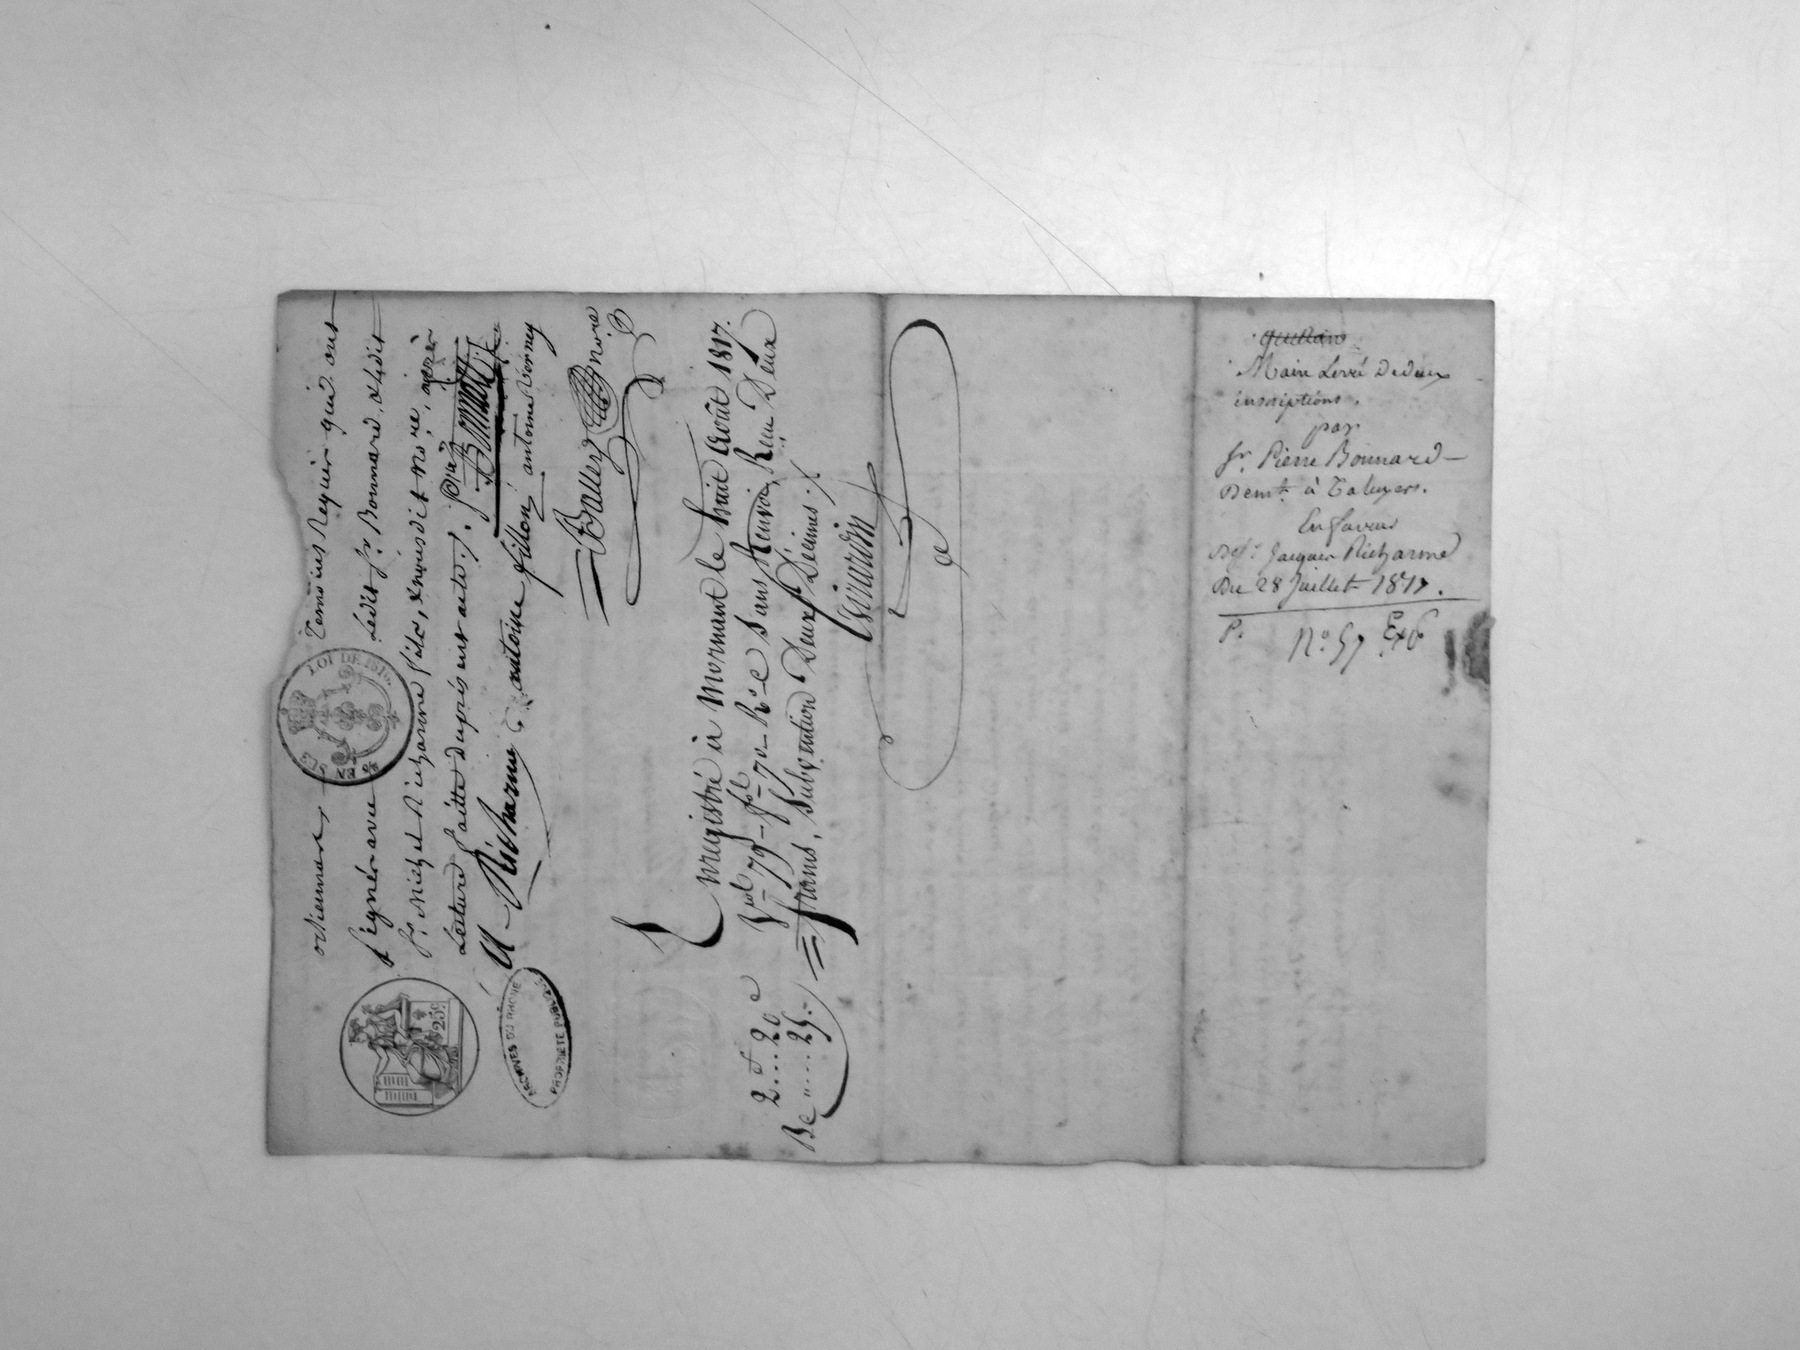 ordinnaux, Temoins Requis qui ont
signés avec ledit Sr. Bonnard, Ledit
Sr. Michel Richarme fils, & nous dit Nore, après
Lecture faitte du présent acte ./.
M Richarme antoine fillon antoine Verney
Nore
LOI DE 1816.
25 EN SUS
25 c.
ARCHIVES DU RHÔNE
PROPRIÉTÉ PUBLIQUE
Enregistré à Mornant le huit Août 1817.
Vol 79 fol 70 Ro Ce Sans Renvoi, Reçu Deux
francs, Subvention Deux Décimes ./.
2 f .. 20 c
25
quittance
Main Levée De deux
inscriptions.
par
Sr. Pierre Bonnard
Demt. à Taluyers.
En faveur
De Sr. Jacques Richarme
Du 28 Juillet 1817.
P. No. 57 Exp